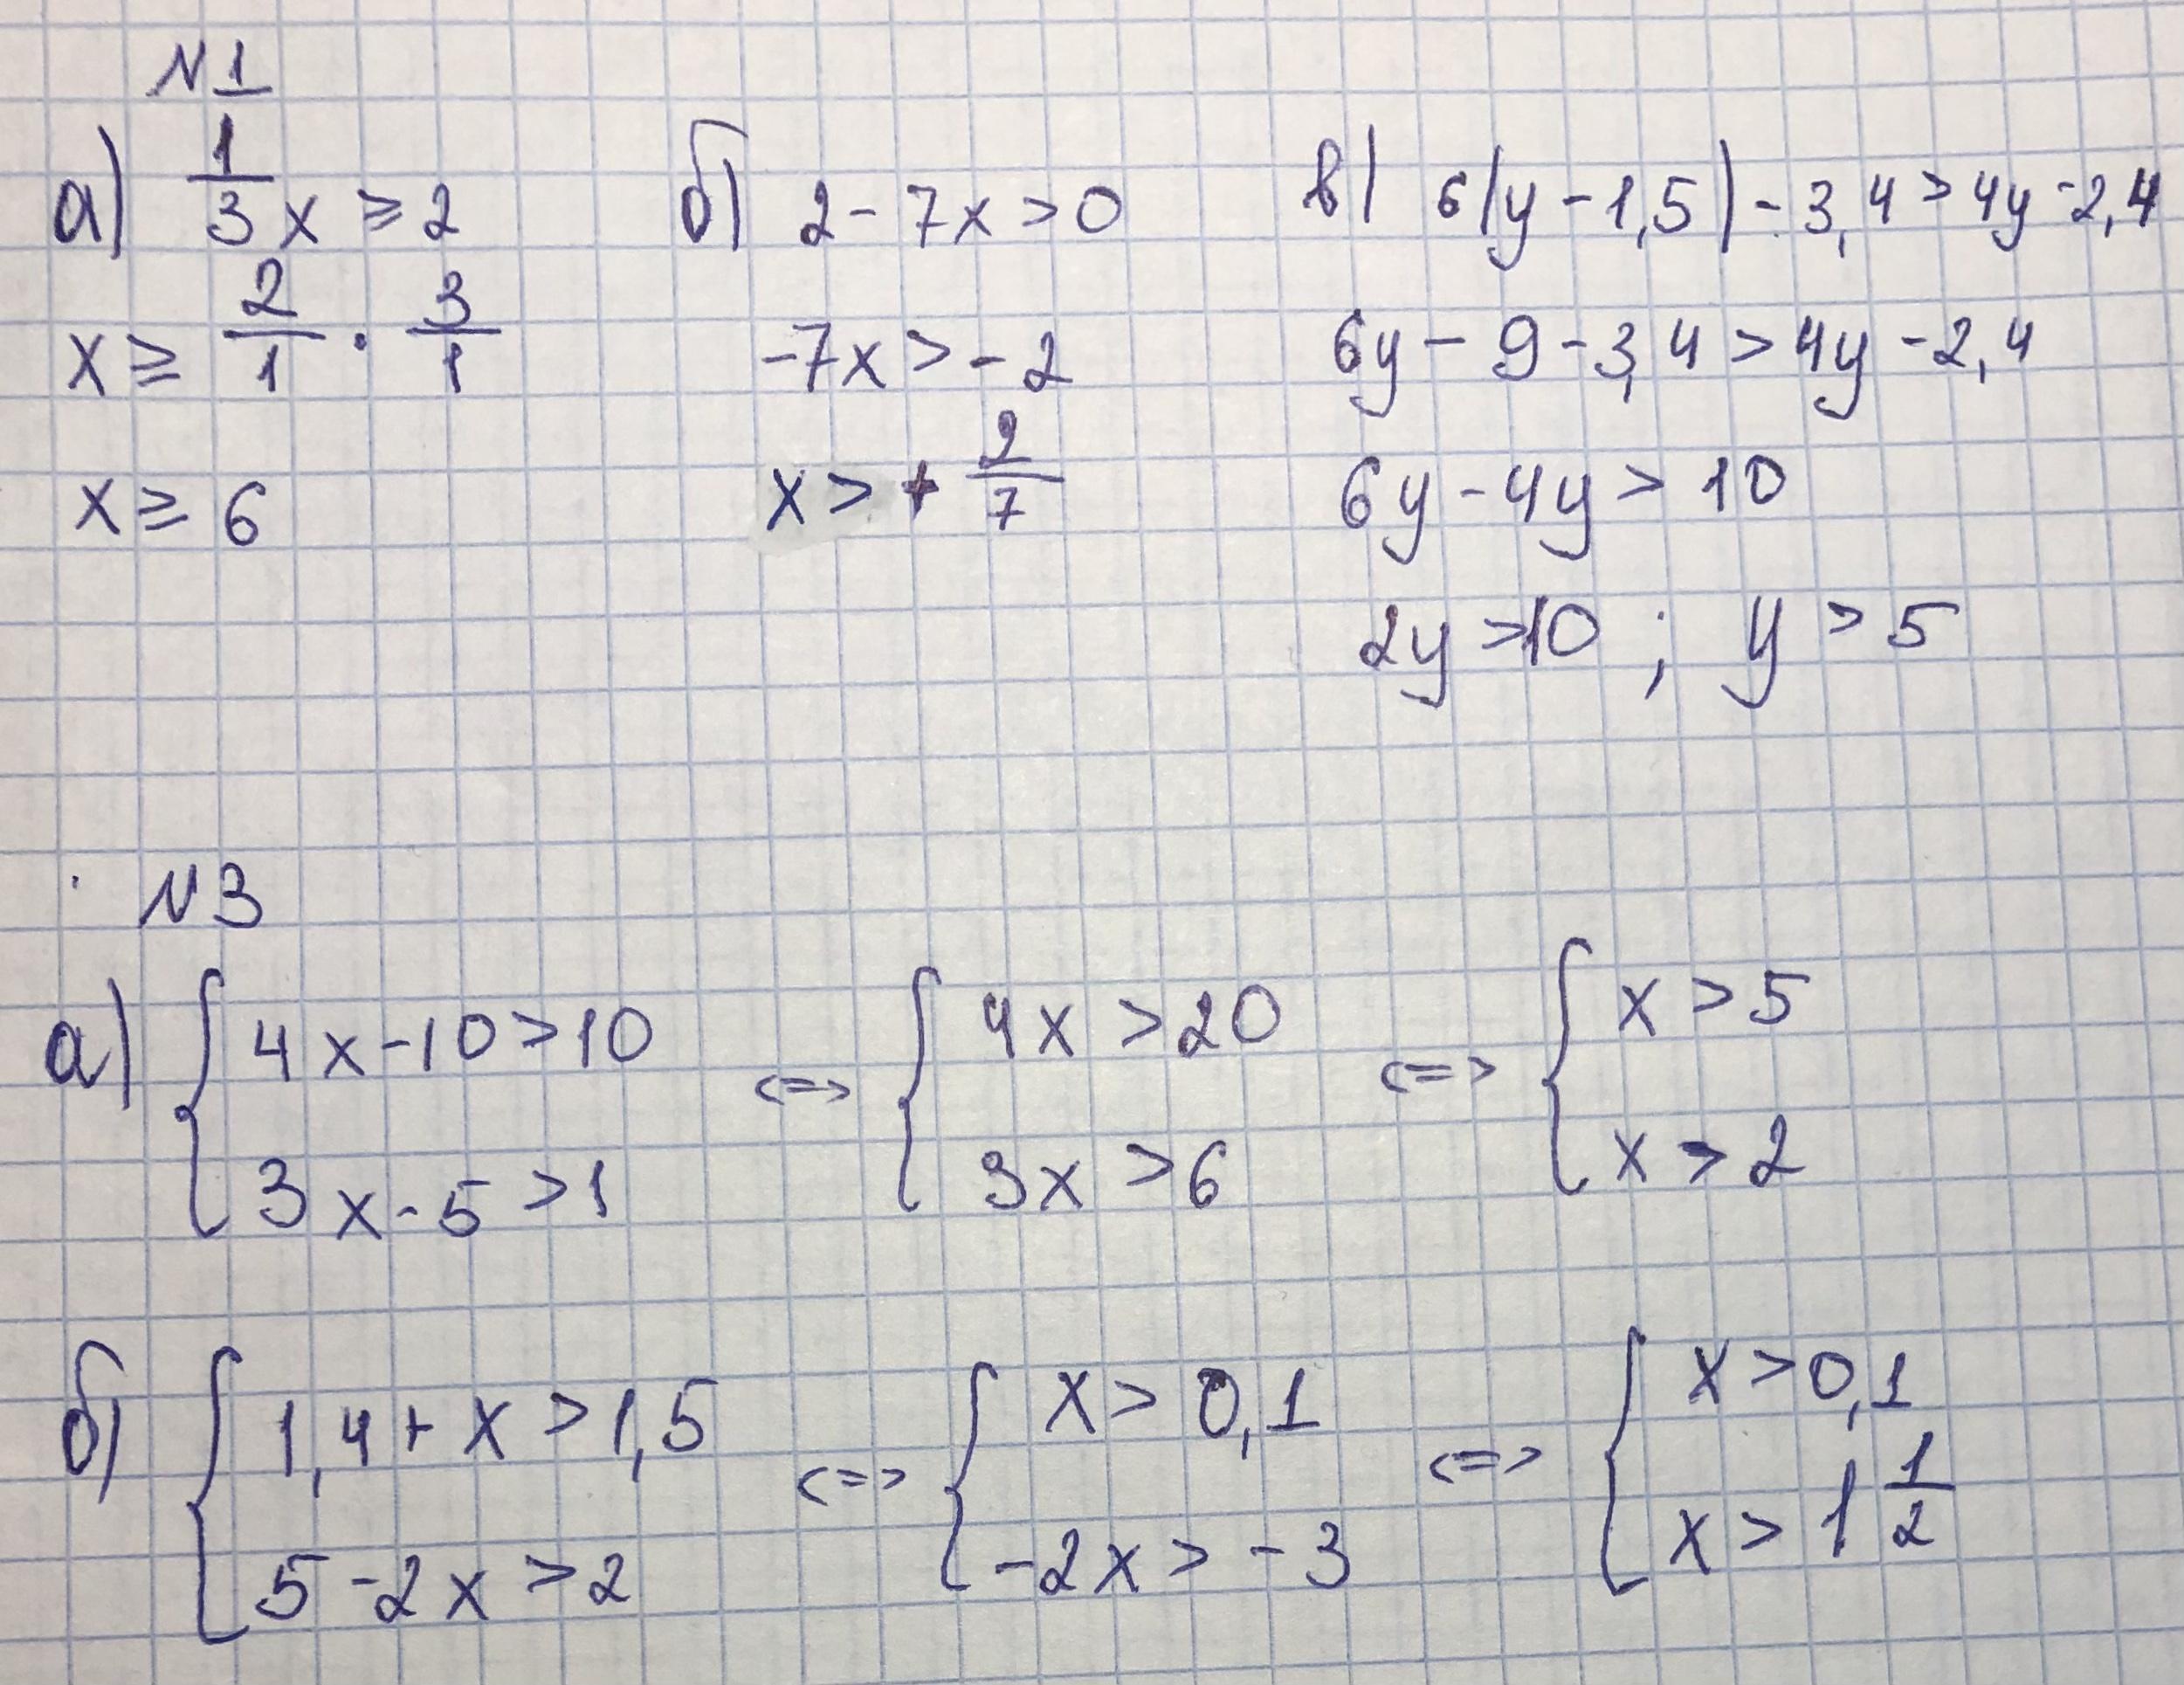 N1
а) 1/3 x ≥ 2
x ≥ 2/1 · 3/1
x ≥ 6
б) 2 - 7x > 0
-7x > -2
x > + 2/7
в) 6(y - 1,5) - 3,4 > 4y - 2,4
6y - 9 - 3,4 > 4y - 2,4
6y - 4y > 10
2y > 10 ; y > 5
N3
а) { 4x - 10 > 10 <=> { 4x > 20 <=> { x > 5
3x - 5 > 1 3x > 6 x > 2
б) { 1,4 + x > 1,5 <=> { x > 0,1 <=> { x > 0,1
5 - 2x > 2 -2x > -3 x > 1 1/2